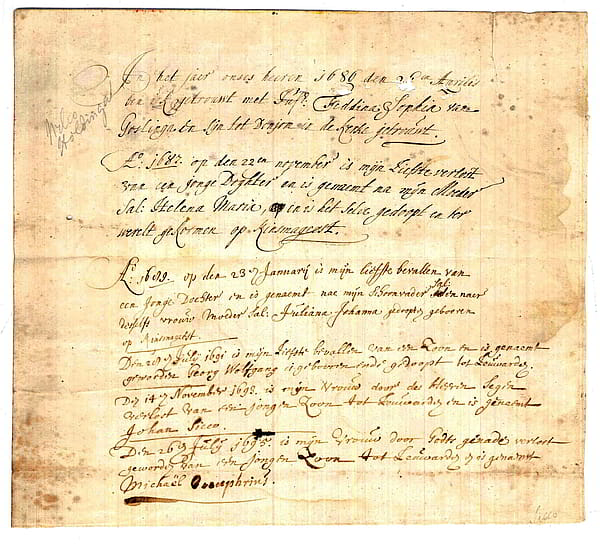 In het jaer onses heeren 1686 den Aprilis
ben getrouwt met Sophia van
Goslinga en Sijn tot in de kerke getrouwt.
Ao. 1687. op den 22en november is mijn Liefste verlost
van een jonge Doghter en is genaemt na mijn Moeder
Sal: Helena Maria, en is het selve gedoopt en ter
werelt gekommen op Rinsmageest.
Ao. 1689. op den 23 Januarij is mijn liefste bevallen van
een Jonge Dochter en is genaemt nae mijn Schoonvader Sal: en naer
desselfs vrouw Moeder Sal: Juliana Johanna gedoopt geboren
op Rinsmageest.
Den Julij 1691 is mijn Liefste bevallen van een Zoon en is genaemt
geworden Georg Wolfgang is gebooren ende gedoopt tot Leeuwarden
Den 14 November 1693. is mijn Vrouw door de Seegen
verlost van een jongen Zoon tot Leeuwarden en is genaemt
Johan
Den 26 Julij 1695. is mijn Vrouw door Godts genade verlost
geworden van een jongen Zoon tot Leeuwarden en is genaemt
Michaël Onuphrius.